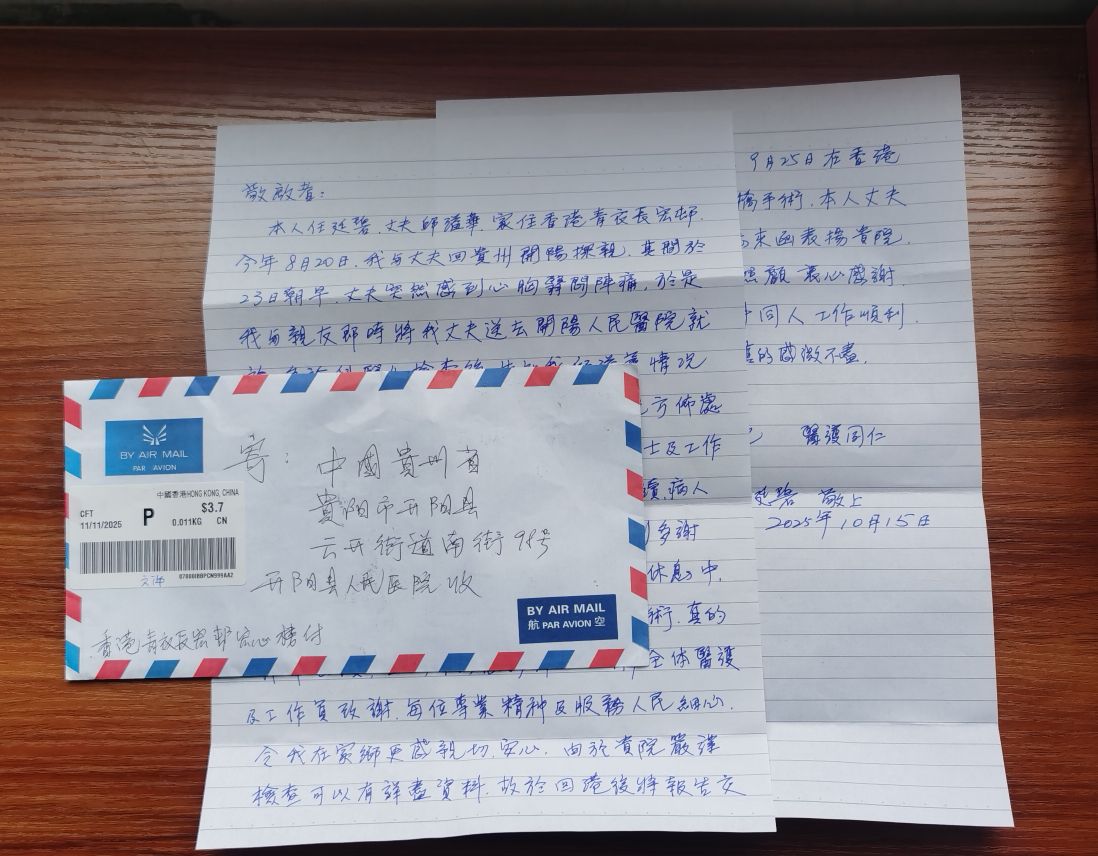 敬啟者：
本人任廷碧，丈夫師溢華，家住香港青衣長宏邨．
今年8月20日，我与丈夫回貴州開陽探親，其間於
23日朝早，丈夫突然感到心胸翳悶陣痛，於是
我与親友即時將我丈夫送去開陽人民醫院就
情況
佈處
士及工作
病人
多謝
休息中，
術，真的
全体醫護
及工作員致謝，每位專業精神及服務人民細心．
令我在家鄉更感親切，安心．由於貴院嚴謹
檢查可以有詳盡資料，故於回港後將報告交
9月25日在香港
橋手術，本人丈夫
來函表揚貴院
照顧衷心感謝
同人工作順利
真的感激不盡．
醫護同仁
廷碧 敬上
2025年10月15日
BY AIR MAIL
PAR AVION
中國香港HONG KONG, CHINA
CFT P $3.7
11/11/2025 0.011KG CN
07800IBBPCN999AA2
寄：中國貴州省
貴阳市开阳县
云开街道南街98号
开阳县人民医院收
BY AIR MAIL
航 PAR AVION 空
香港青衣長宏邨宏心樓付